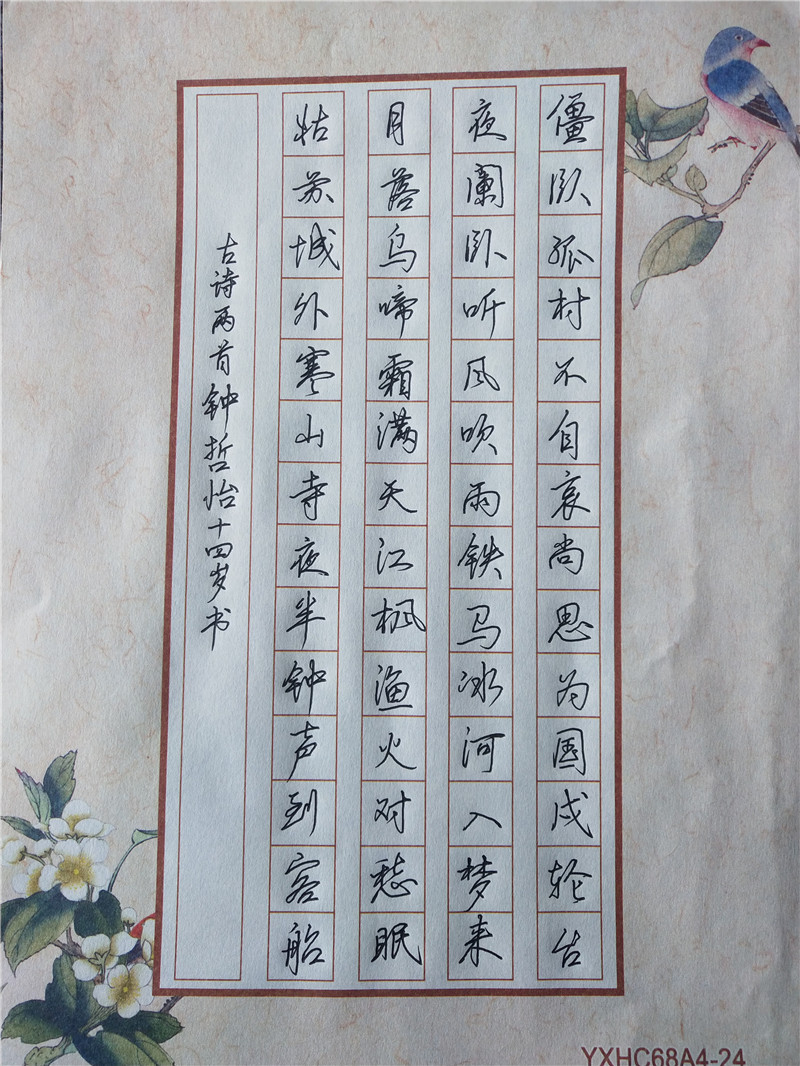 僵卧孤村不自哀尚思为国戍轮台
夜阑卧听风吹雨铁马冰河入梦来
月落乌啼霜满天江枫渔火对愁眠
姑苏城外寒山寺夜半钟声到客船
古诗两首钟哲怡十四岁书
YXHC68A4-24